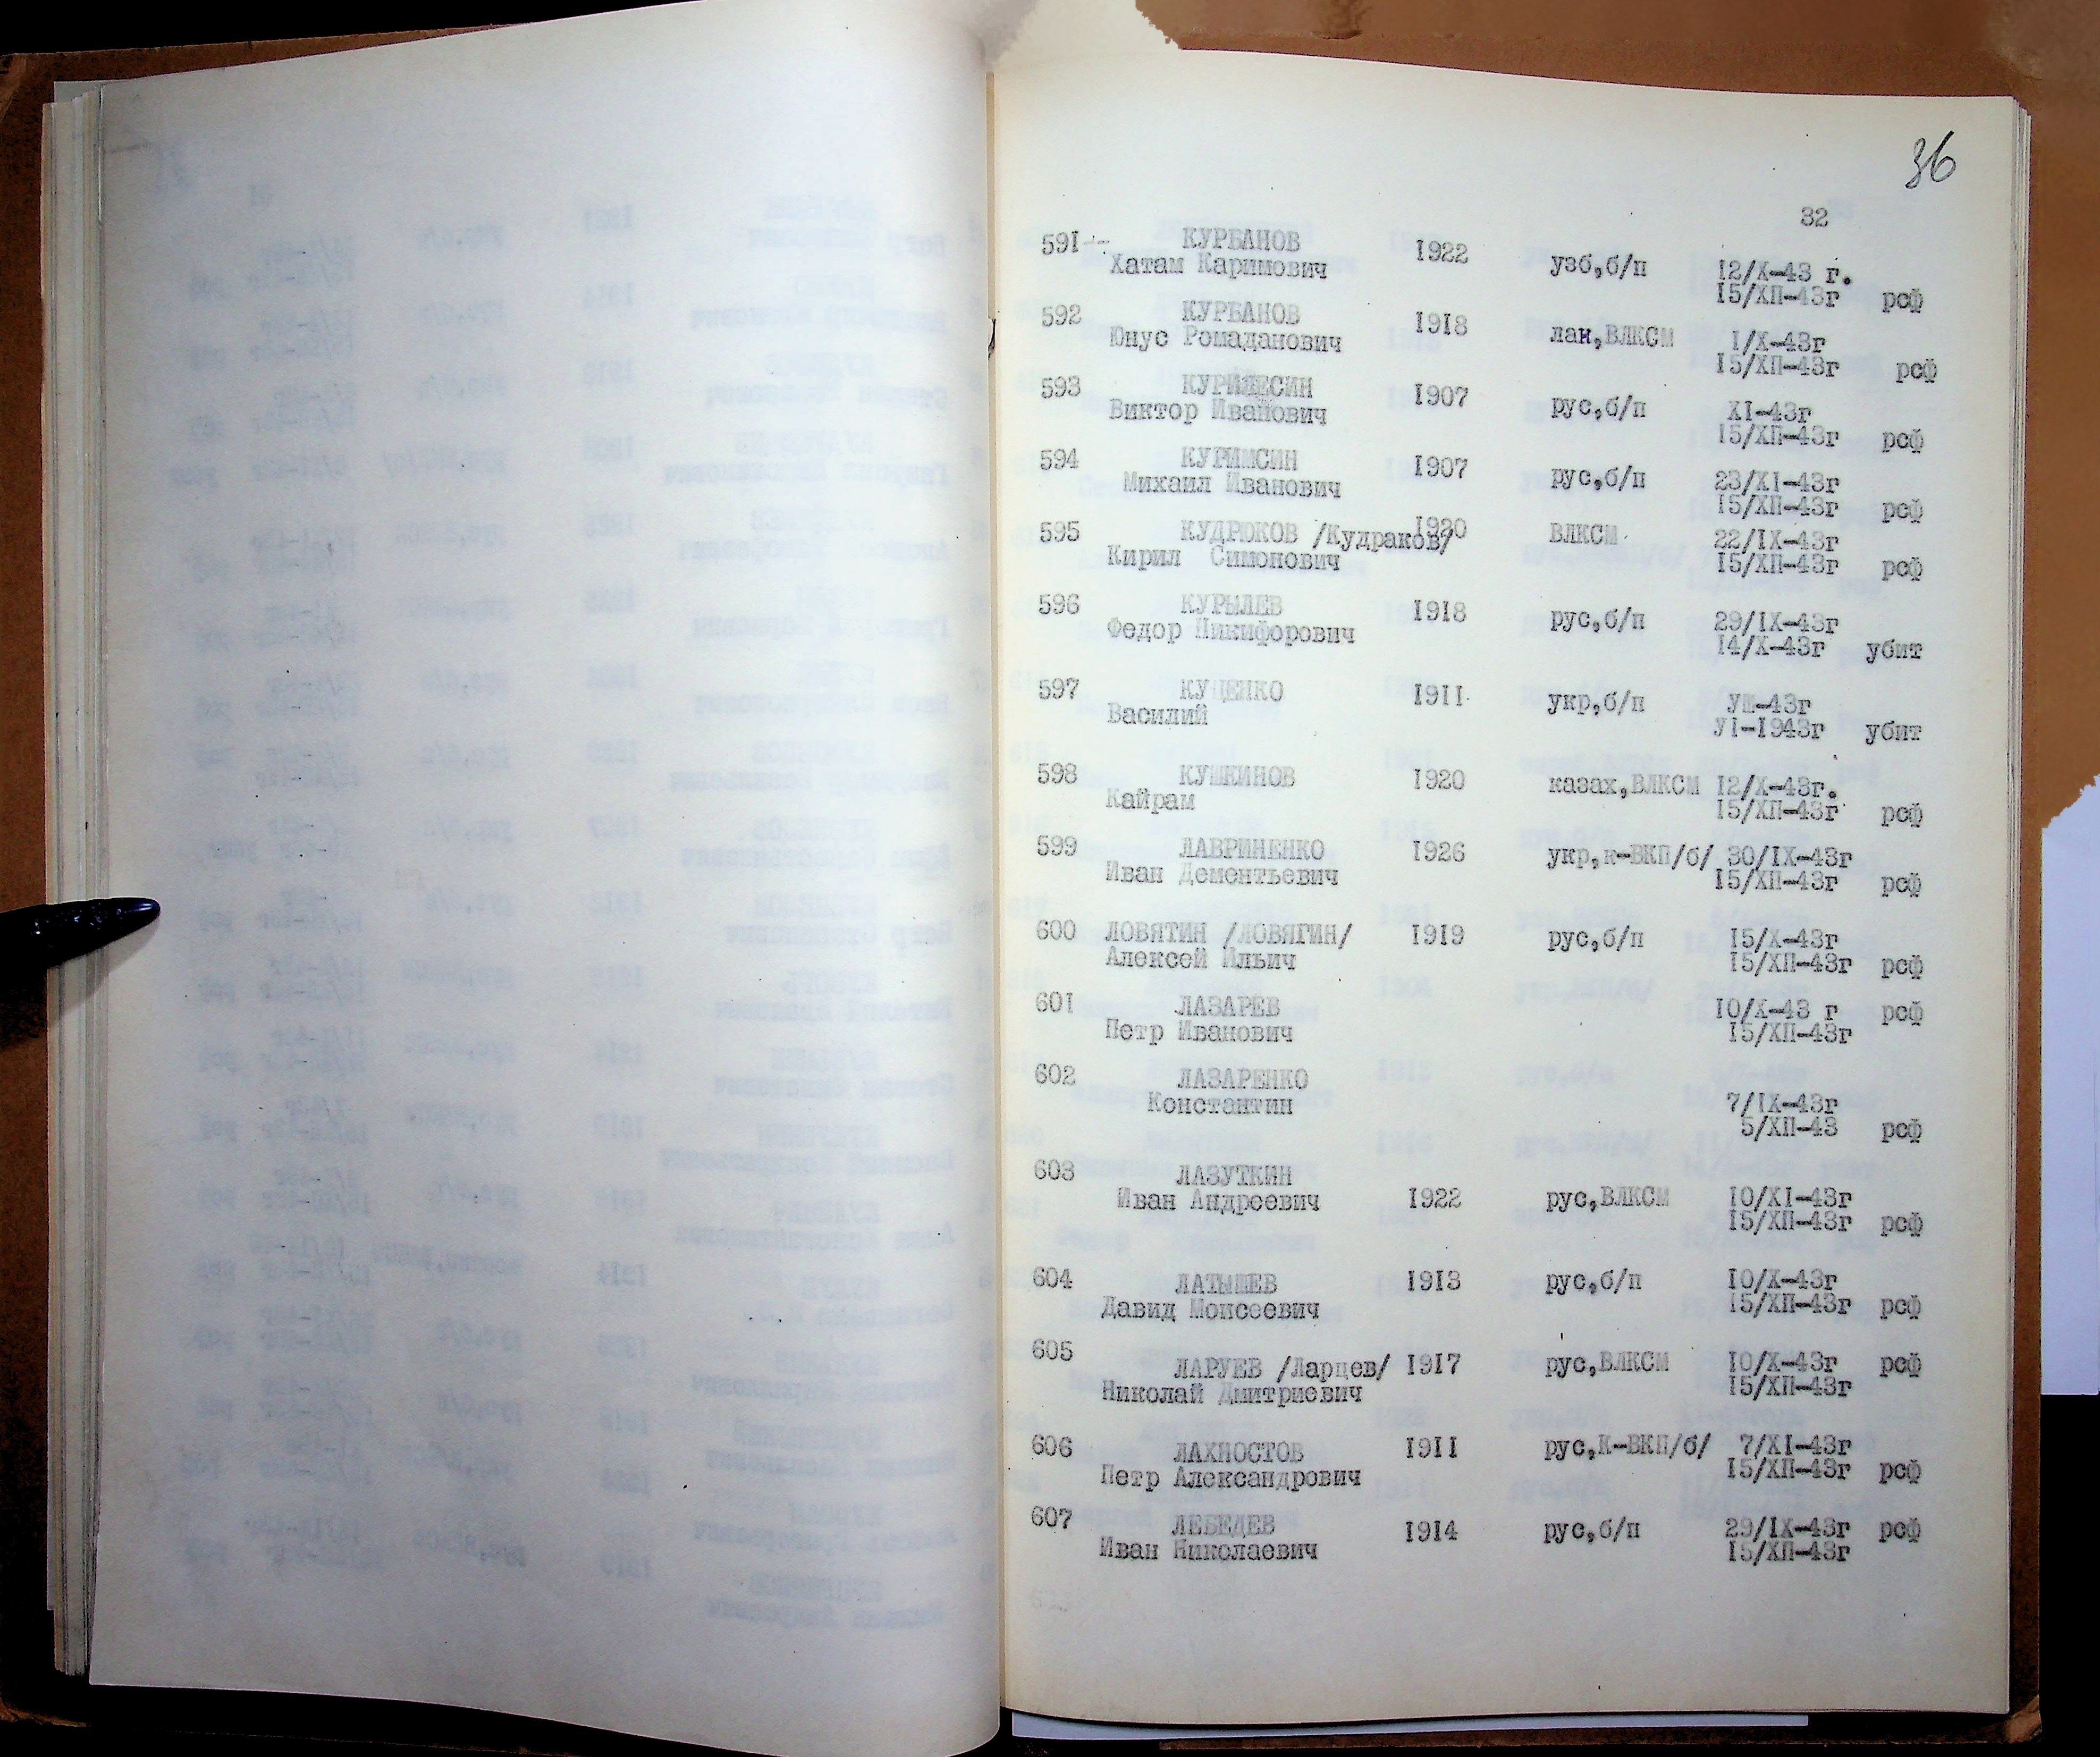 36
32
591-- КУРБАНОВ 1922 узб,б/п 12/X-43 г.
Хатам Каримович 15/ХП-43г рсф
592 КУРБАНОВ 1918 лан,ВЛКСМ 1/X-43г
Юнус Ромаданович 15/ХП-43г рсф
593 1907 рус,б/п XI-43г
Виктор Иванович 15/ХП-43г рсф
594 КУРИМСИН 1907 рус,б/п 23/XI-43г
Михаил Иванович 15/ХП-43г рсф
595 КУДРЮКОВ /Кудраков/ 1920 ВЛКСМ 22/IX-43г
Кирил Симонович 15/ХП-43г рсф
596 КУРЫЛЕВ 1918 рус,б/п 29/IX-43г
Федор Никифорович 14/X-43г убит
597 КУЦЕНКО 1911 укр,б/п УШ-43г
Василий У1-1943г убит
598 КУШКИНОВ 1920 казах,ВЛКСМ 12/X-43г.
Кайрам 15/ХП-43г рсф
599 ЛАВРИНЕНКО 1926 укр,к-ВКП/б/ 30/IX-43г
Иван Дементьевич 15/ХП-43г рсф
600 ЛОВЯТИН /ЛОВЯГИН/ 1919 рус,б/п 15/X-43г
Алексей Ильич 15/ХП-43г рсф
601 ЛАЗАРЕВ 10/X-43 г рсф
Петр Иванович 15/ХП-43г
602 ЛАЗАРЕНКО
Константин 7/IX-43г
5/ХП-43 рсф
603 ЛАЗУТКИН
Иван Андреевич 1922 рус,ВЛКСМ 10/XI-43г
15/ХП-43г рсф
604 ЛАТЫШЕВ 1913 рус,б/п 10/X-43г
Давид Моисеевич 15/ХП-43г рсф
605 ЛАРУЕВ /Ларцев/ 1917 рус,ВЛКСМ 10/X-43г рсф
Николай Дмитриевич 15/ХП-43г
606 ЛАХНОСТОВ 1911 рус,К-ВКП/б/ 7/XI-43г
Петр Александрович 15/ХП-43г рсф
607 ЛЕБЕДЕВ 1914 рус,б/п 29/IX-43г рсф
Иван Николаевич 15/ХП-43г